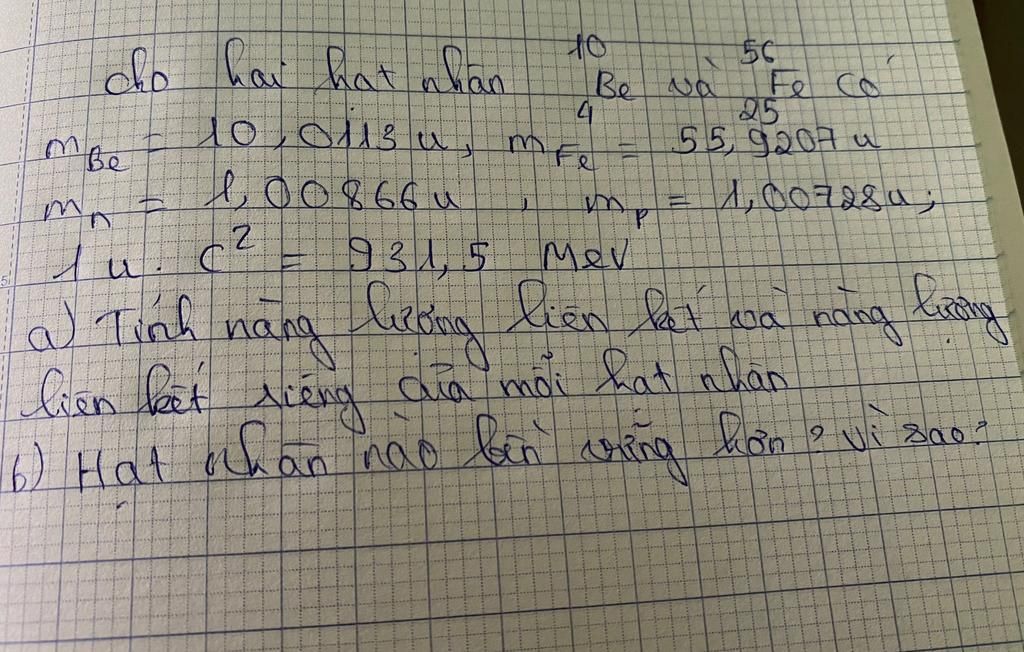 Cho hai hạt nhân ¹⁰₄Be và ⁵⁶₂₅Fe có
m_Be = 10,0113u, m_Fe = 55,9207u
m_n = 1,00866u, m_p = 1,00728u;
1u.c² = 931,5 MeV
a) Tính năng lượng liên kết và năng lượng
liên kết riêng của mỗi hạt nhân
b) Hạt nhân nào bền vững hơn? Vì sao?